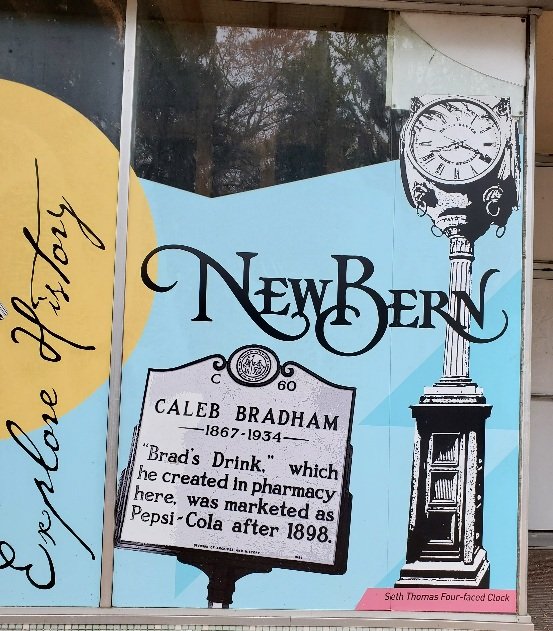 Explore History
NEWBERN
C 60
CALEB BRADHAM
1867-1934
"Brad's Drink," which
he created in pharmacy
here, was marketed as
Pepsi-Cola after 1898.
Seth Thomas Four-faced Clock